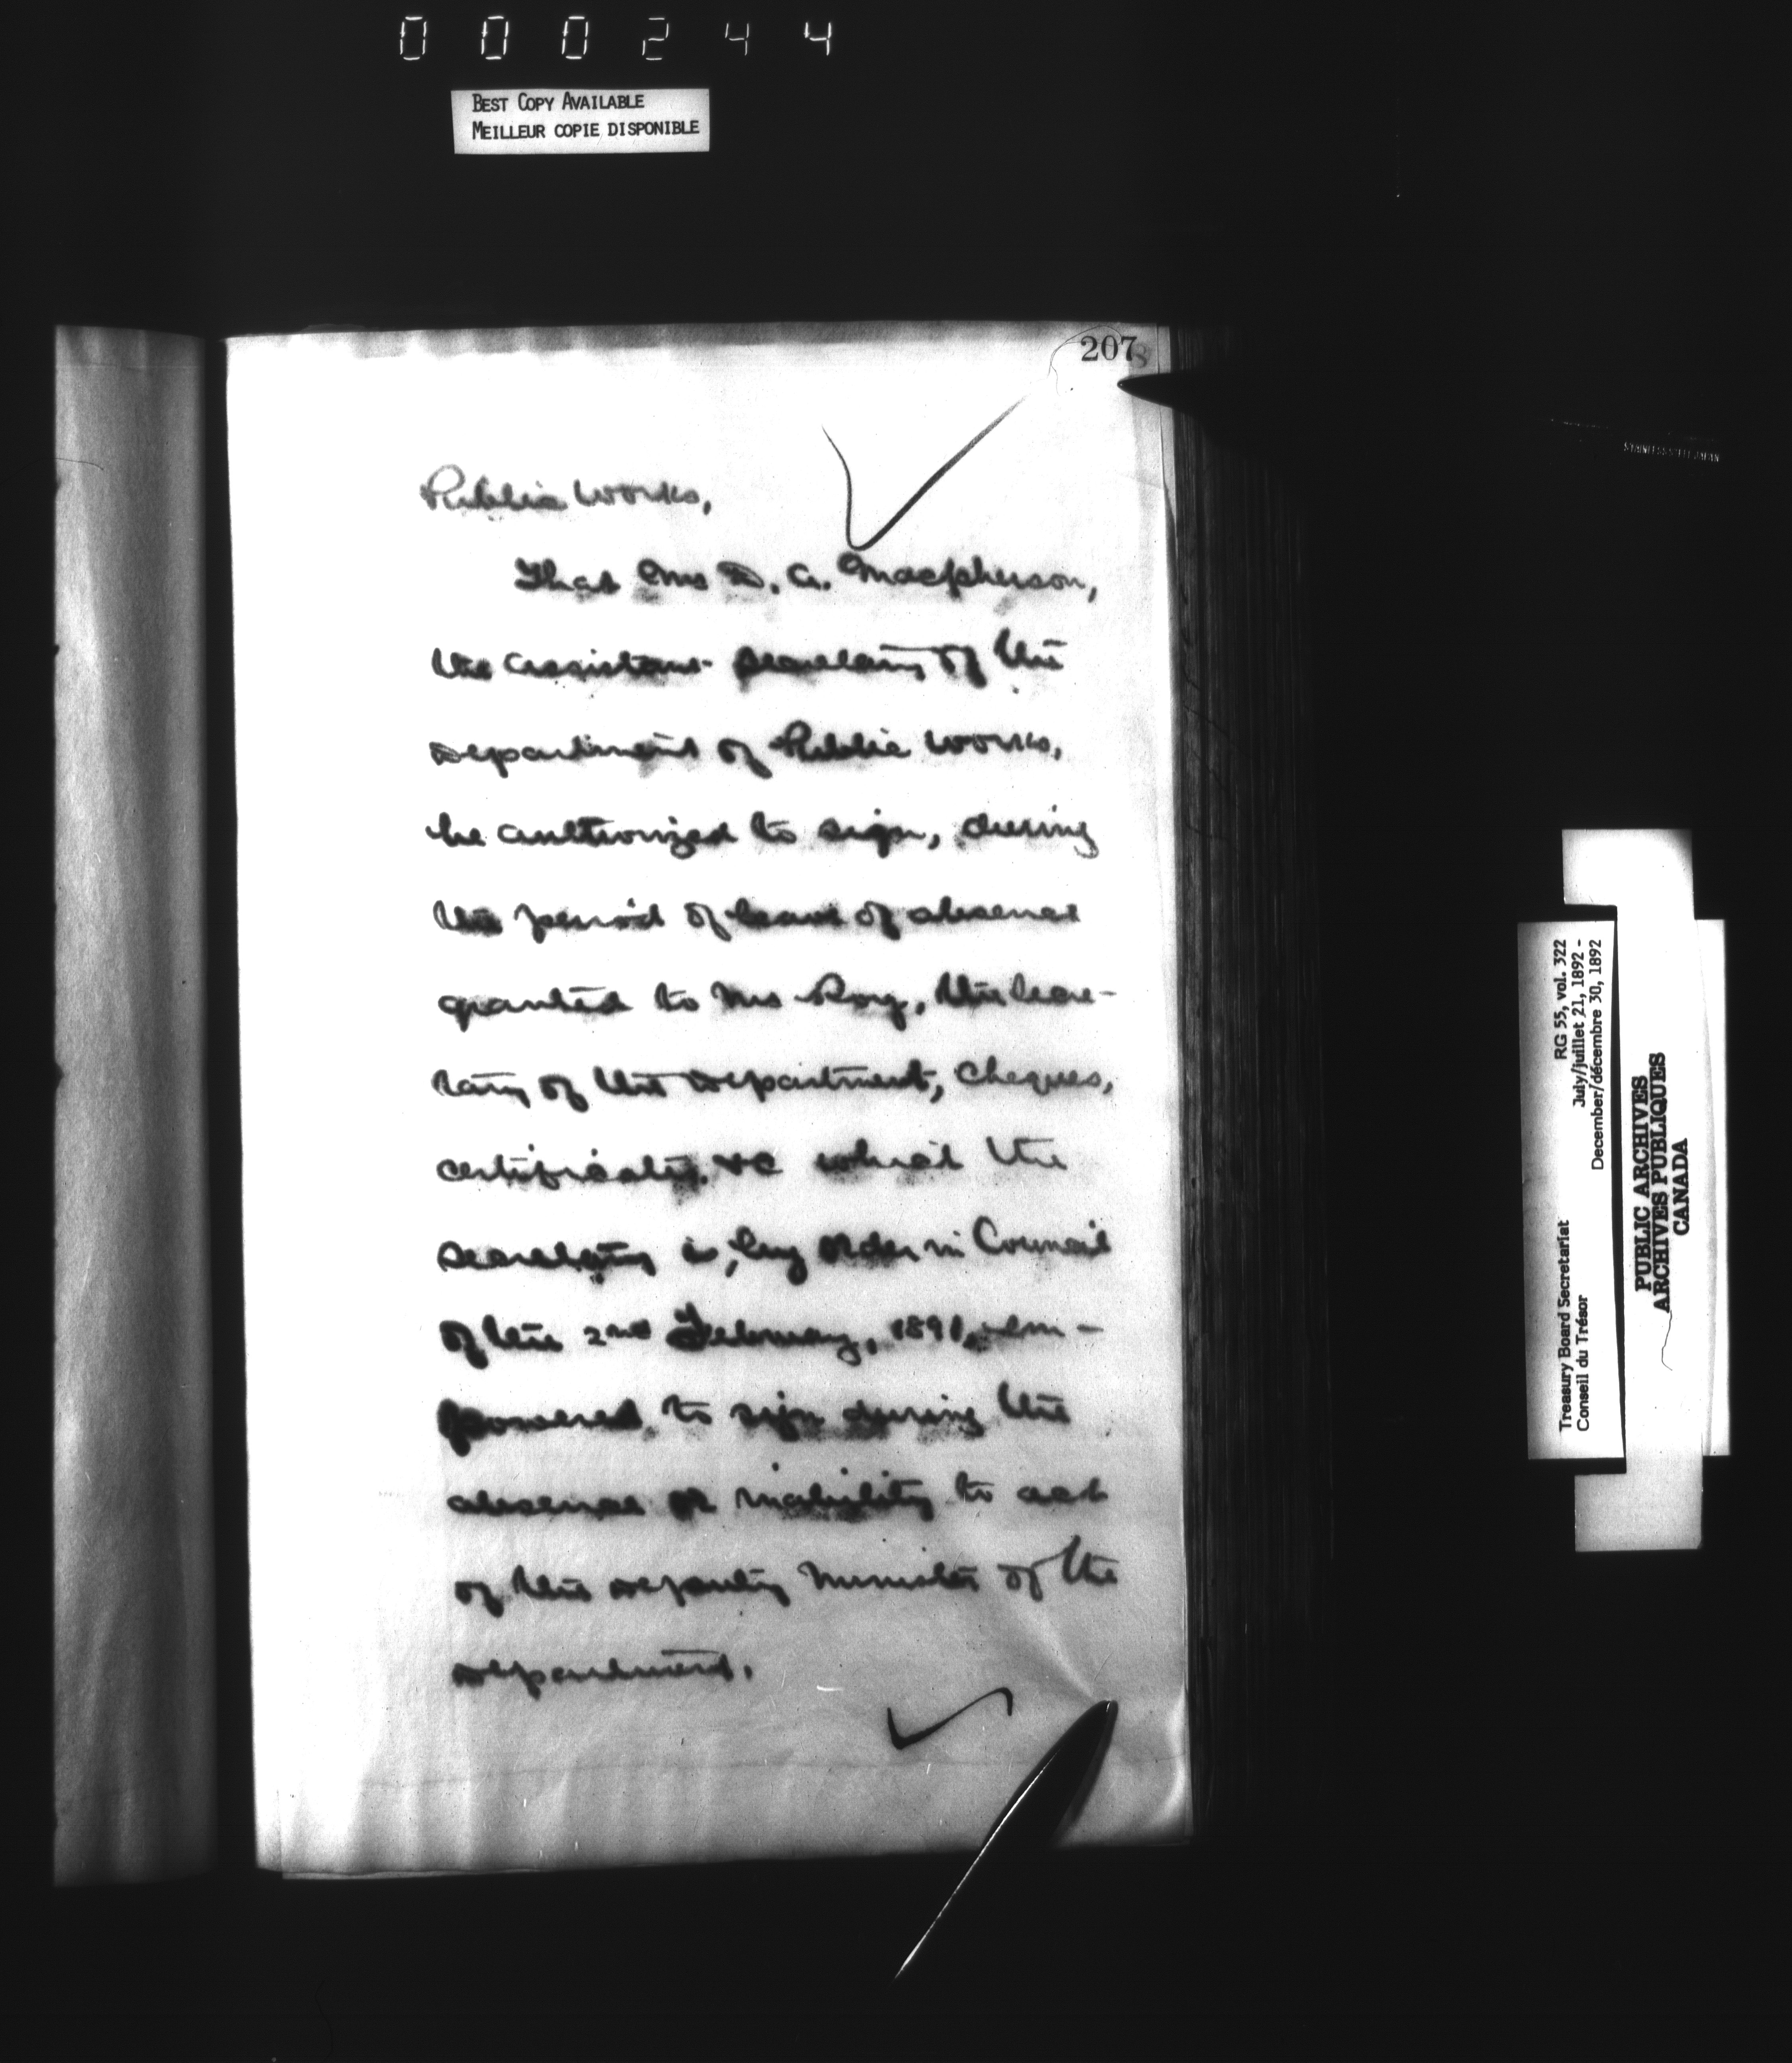 000244
BEST COPY AVAILABLE
MEILLEUR COPIE DISPONIBLE
207
Public Works,
That Mr D. A. Macpherson,
the assistant secretary of the
Department of Public Works,
be authorized to sign, during
the period of leave of absence
granted to Mr Roy, the Secre-
tary of the Department, cheques,
certificates &c which the
Secretary is, by Order in Council
of the 2nd February, 1891, em-
powered to sign during the
absence or inability to act
of the Deputy Minister of the
Department.
STAINLESS STEEL JAPAN
Treasury Board Secretariat RG 55, vol. 322
Conseil du Trésor July/juillet 21, 1892 -
December/décembre 30, 1892
PUBLIC ARCHIVES
ARCHIVES PUBLIQUES
CANADA